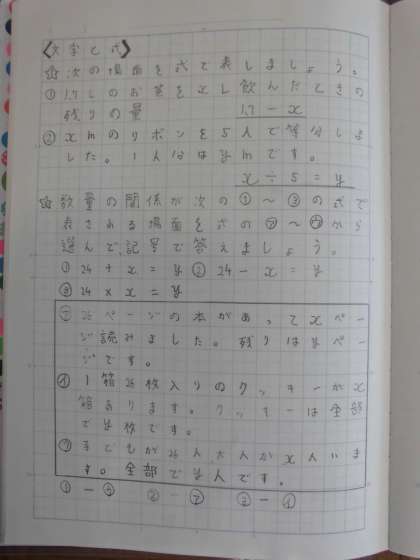 〈文字と式〉
☆次の場面を式で表しましょう。
①1.7Lのお茶をxL飲んだときの
残りの量 1.7－x
②xmのリボンを5人で等分しま
した。1人分はymです。
x÷5＝y
☆数量の関係が次の①～③の式で
表される場面を式の㋐～㋒から
選んで、記号で答えましょう。
①24＋x＝y ②24－x＝y
③24×x＝y
㋐24ページの本があってxペー
ジ読みました。残りはyペー
ジです。
㋑1箱24枚入りのクッキーがx
箱あります。クッキーは全部
でy枚です。
㋒子どもが24人、大人がx人いま
す。全部でy人です。
①－㋒ ②－㋐ ③－㋑